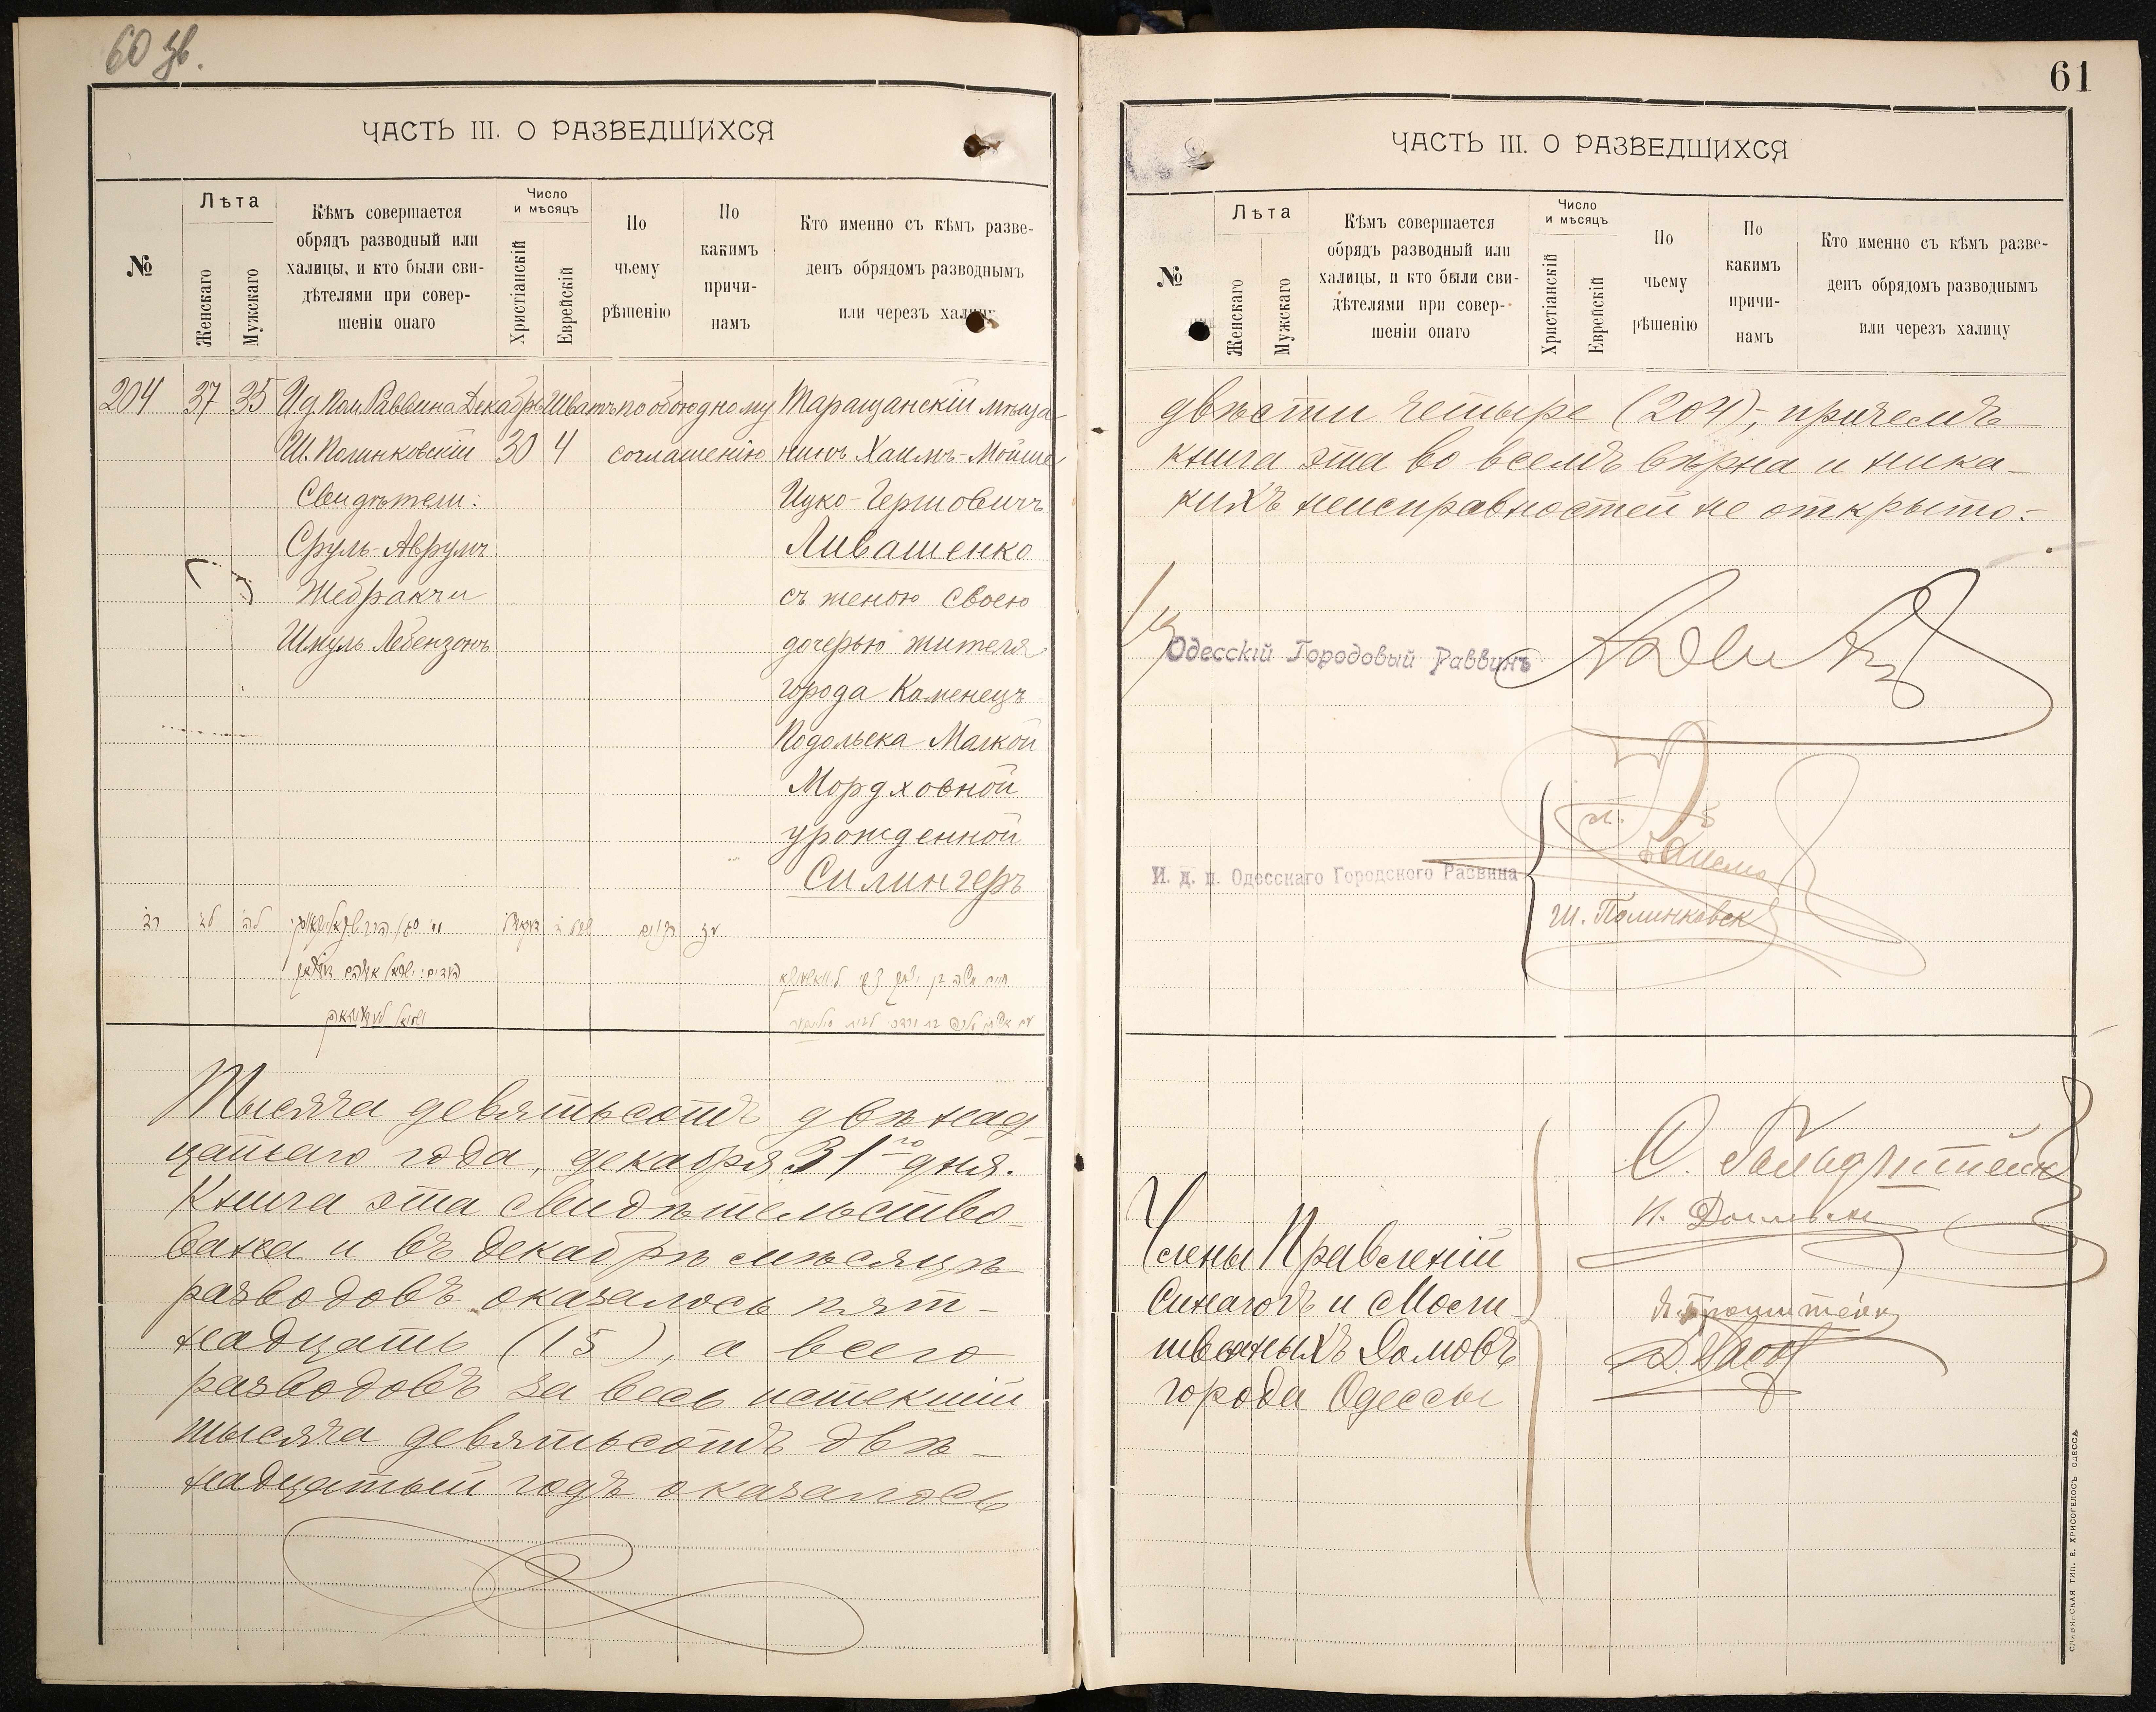 60 зв.
ЧАСТЬ III. О РАЗВЕДШИХСЯ
№
Лѣта
Женскаго
Мужскаго
Кѣмъ совершается
обрядъ разводный или
халицы, и кто были сви-
дѣтелями при совер-
шеніи онаго
Число
и мѣсяцъ
Христіанскій
Еврейскій
По
чьему
рѣшенію
По
какимъ
причи-
намъ
Кто именно съ кѣмъ разве-
денъ обрядомъ разводнымъ
или черезъ халицу
204 37 35 И. д. пом. Раввина Декабрь Шватъ по обоюдному Таращанскій мѣща-
Ш. Полинковскій 30 4 соглашенію нинъ Хаимъ-Мойше
Свидѣтели: Ицко-Гершовичъ
Сруль-Аврумъ Ливашенко
Жебракъ и съ женою своею
Шмуль Лебензонъ дочерью жителя
города Каменецъ
Подольска Малкой
Мордховной
урожденной
Силингеръ
Тысяча девятьсотъ двѣнад-
цатаго года, декабря 31го дня.
Книга эта свидѣтельство-
вана и въ декабрѣ мѣсяцѣ
разводовъ оказалось пят-
надцать (15), а всего
разводовъ за весь истекшій
тысяча девятьсотъ двѣ-
надцатый годъ оказалось
61
ЧАСТЬ III. О РАЗВЕДШИХСЯ
№
Лѣта
Женскаго
Мужскаго
Кѣмъ совершается
обрядъ разводный или
халицы, и кто были сви-
дѣтелями при совер-
шеніи онаго
Число
и мѣсяцъ
Христіанскій
Еврейскій
По
чьему
рѣшенію
По
какимъ
причи-
намъ
Кто именно съ кѣмъ разве-
денъ обрядомъ разводнымъ
или черезъ халицу
двѣсти четыре (204), причемъ
книга эта во всемъ вѣрна и ника-
кихъ неисправностей не открыто.
Одесскій Городовый Раввинъ
И. д. п. Одесскаго Городского Раввина
Ш. Полинковск
Члены Правленій
Синагогъ и Моли-
твенныхъ Домовъ
города Одессы
СЛАВЯНСКАЯ ТИП. Е. ХРИСОГЕЛОСЪ ОДЕССА